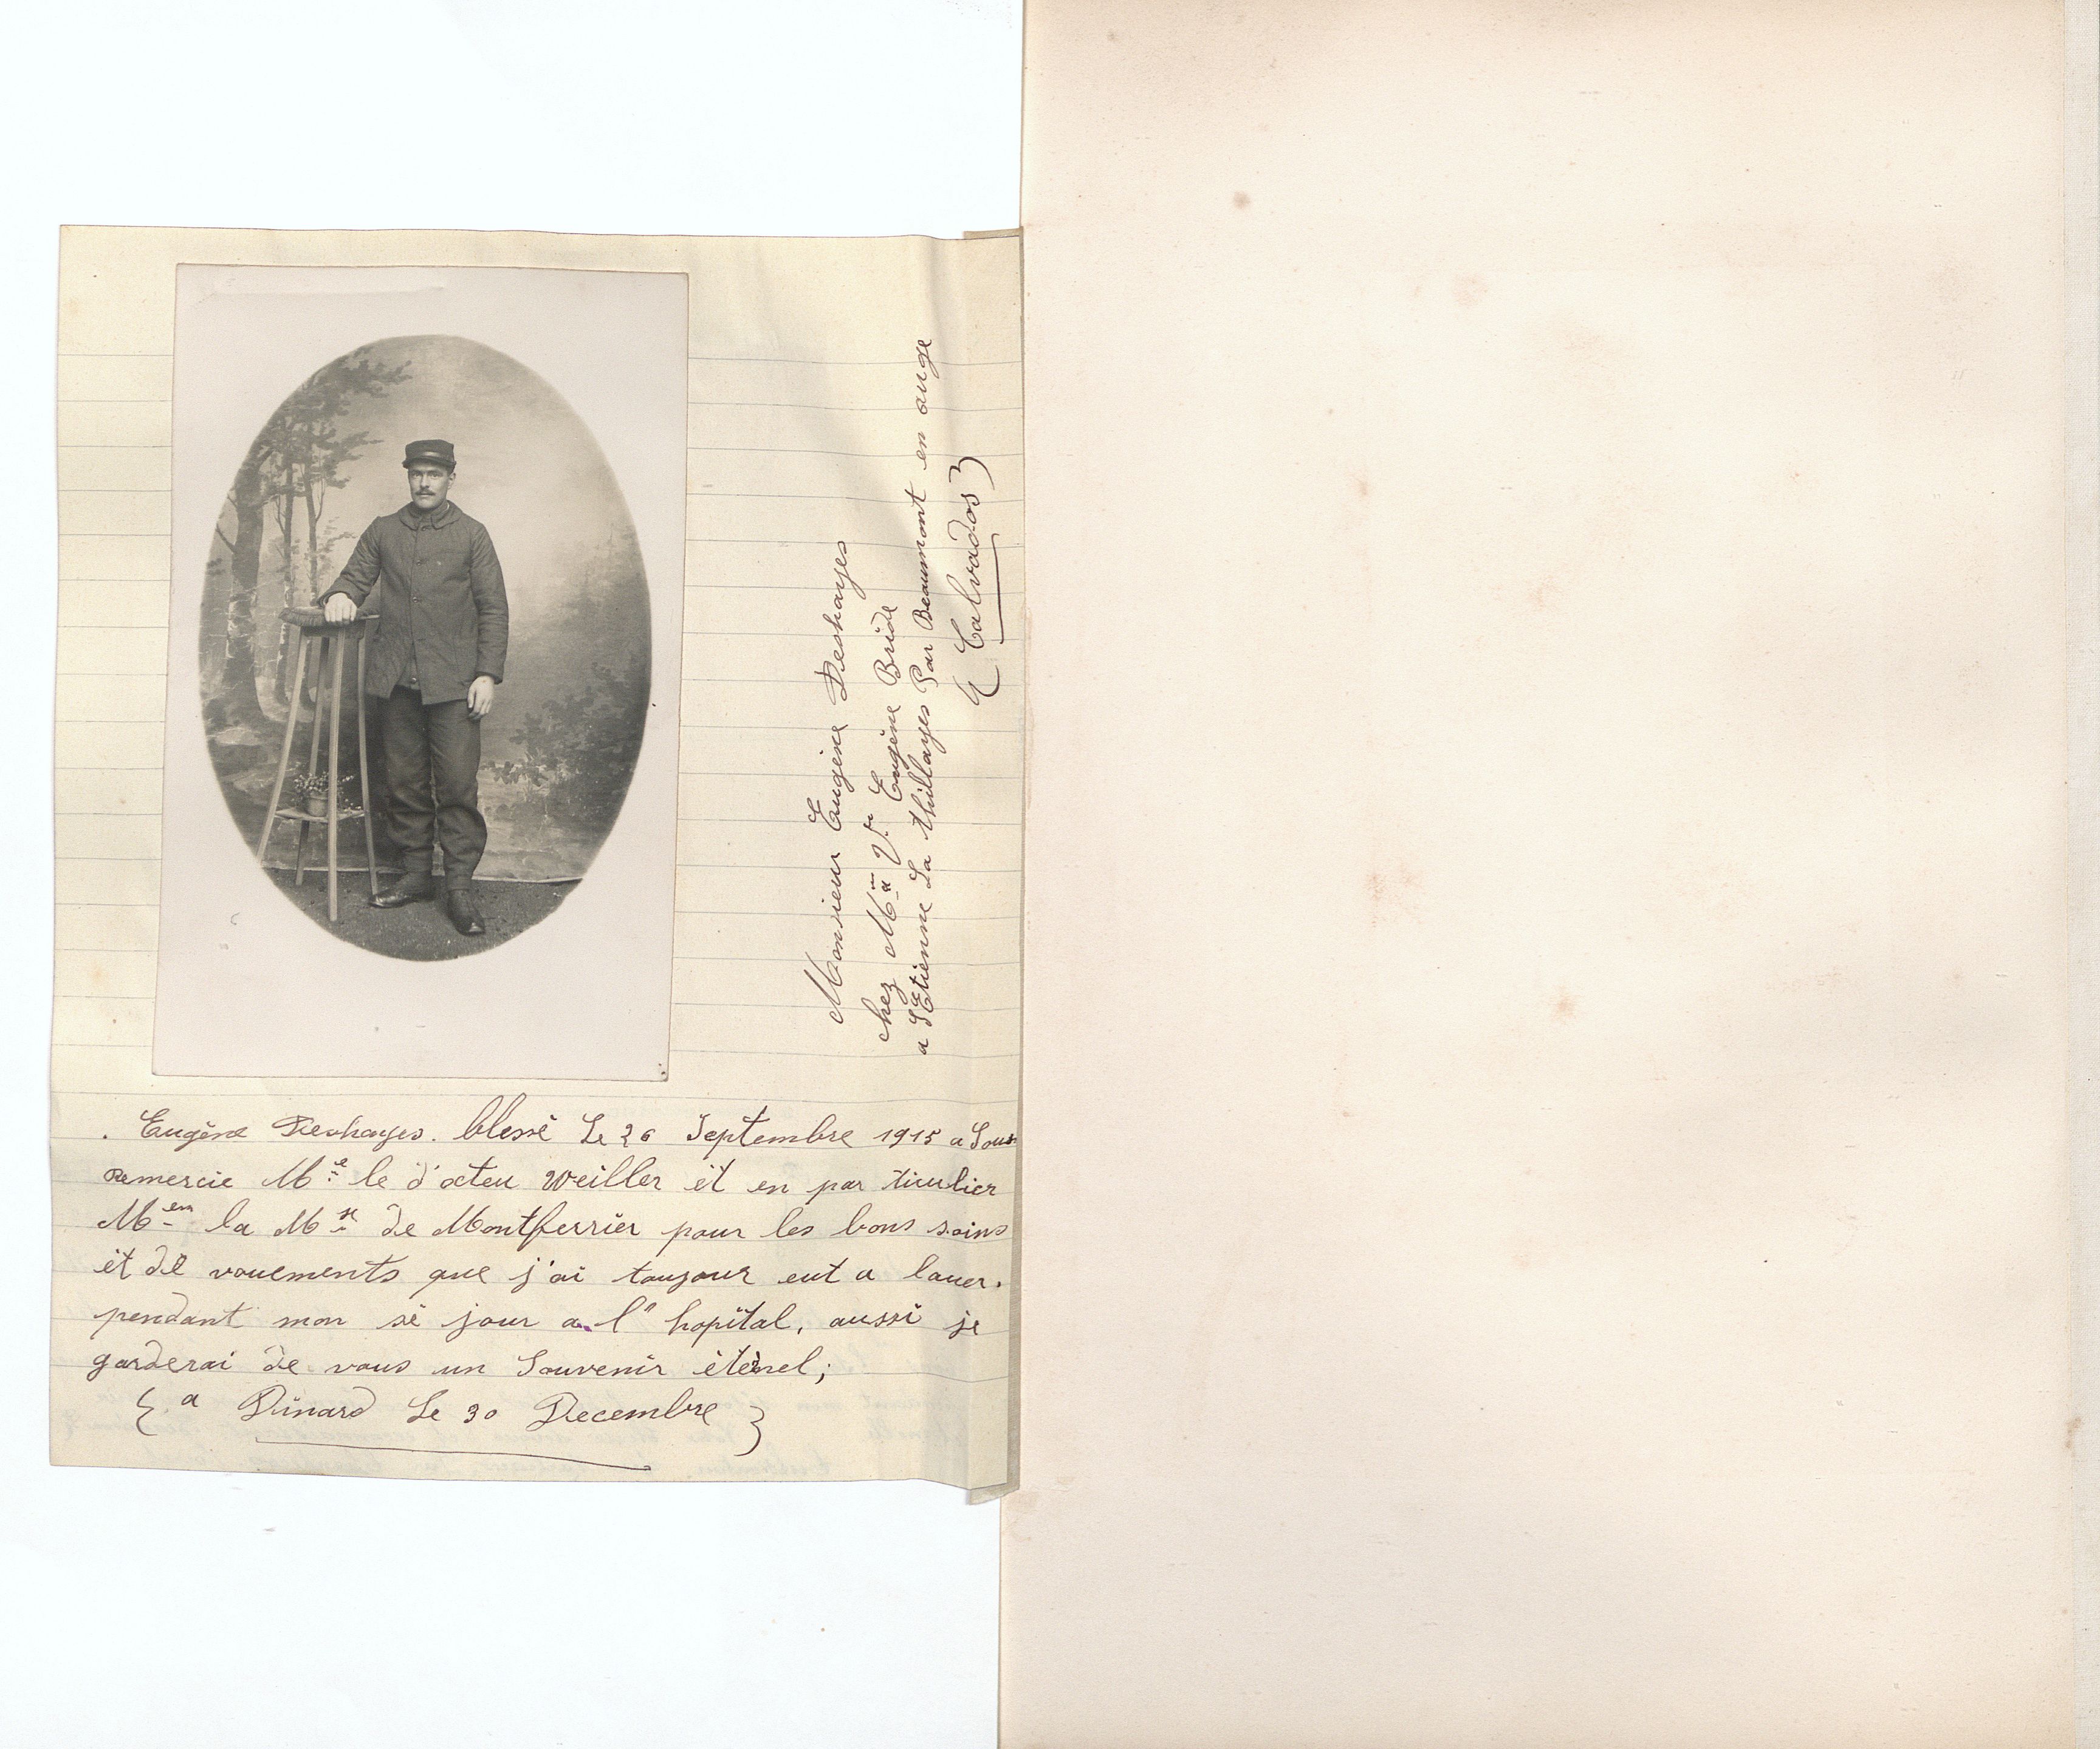 Monsieur Eugène Deshayes
chez Mme Vve Eugène Bride
a St Etienne La thillayes Par Beaumont en auge
( Calvados )
. Eugène Deshayes. blessé Le 26 Septembre 1915 a
Remercie Mr le d'octeu Weiller et en par ticulier
Mem la Mse de Montferrier pour les bons soins
et dé vouements que j'ai toujour eut a louer.
pendant mon sé jour a l" hopital, aussi je
garderai de vous un Souvenir étérnel;
{ a Dinard Le 30 Decembre }